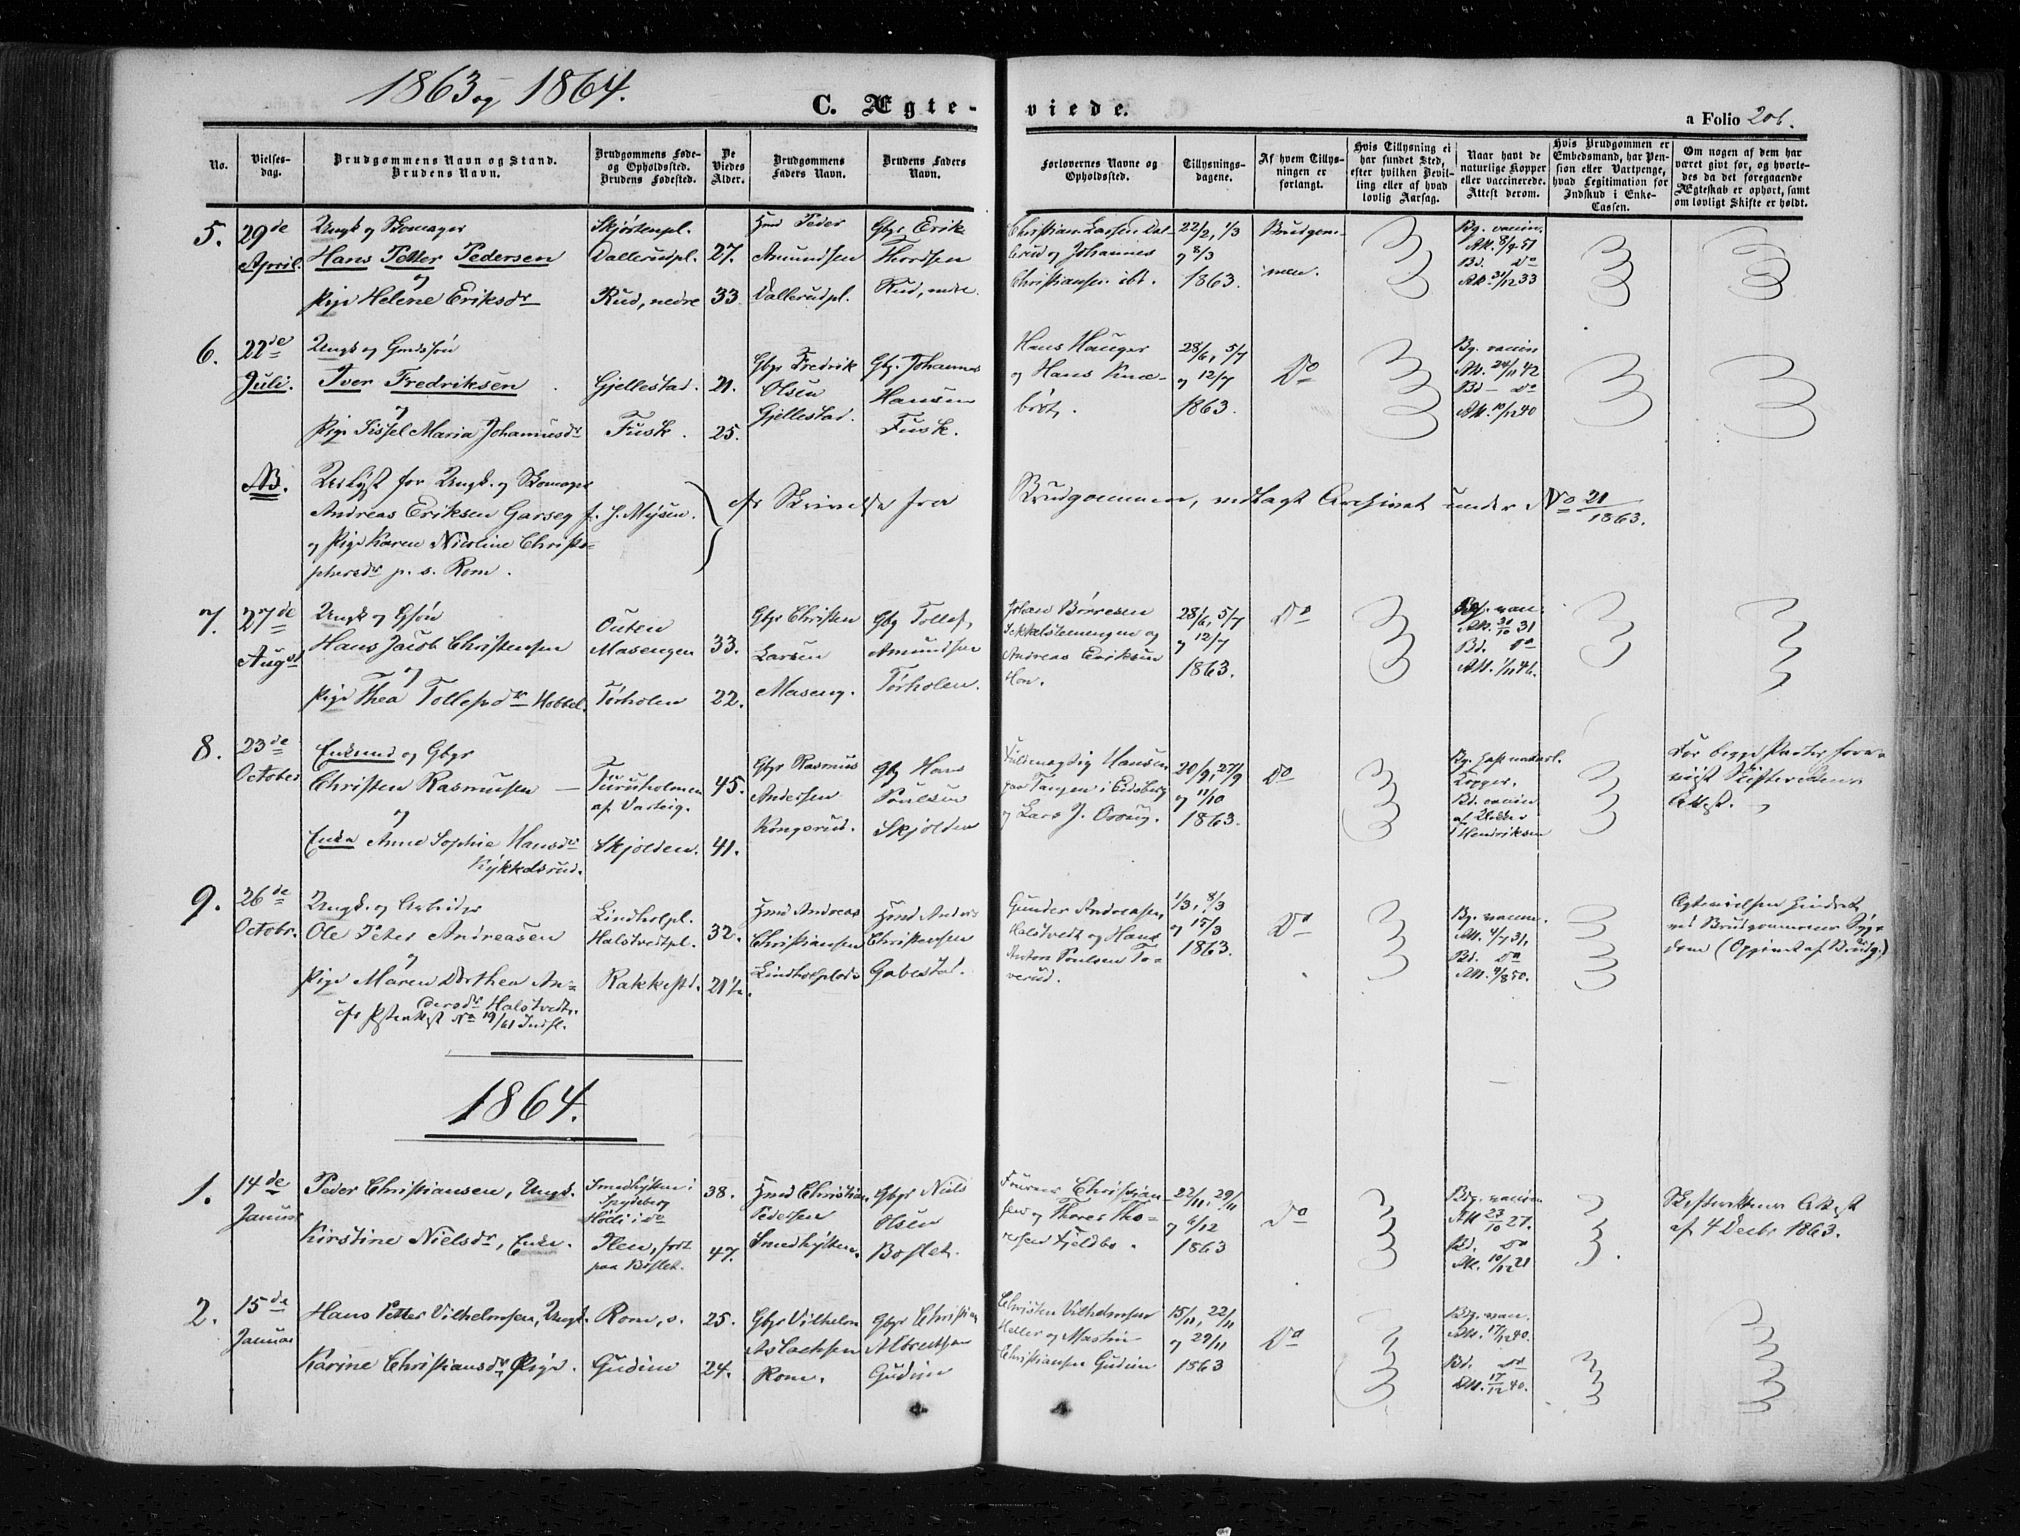 1863 og 1864.
C. Ægteviede.
a Folio 206.
No.
Vielses-
dag.
Brudgommens Navn og Stand.
Brudens Navn.
Brudgommens Føde-
og Opholdssted.
Brudens Fødested.
De
Viedes
Alder.
Brudgommens
Faders Navn.
Brudens Faders
Navn.
Forlovernes Navne og
Opholdssted.
Tillysnings-
dagene.
Af hvem Tillys-
ningen er
forlangt.
Hvis Tillysning ei
har fundet Sted,
efter hvilken Bevil-
ling eller af hvad
lovlig Aarsag.
Naar havt de
naturlige Kopper
eller vaccinerede.
Attest derom.
Hvis Brudgommen er
Embedsmand, har Pen-
sion eller Vartpenge,
hvad Legitimation for
Indskud i Enke-
Cassen.
Om nogen af dem har
været gift før, og hvorle-
des da det foregaaende
Ægteskab er ophørt, samt
om lovligt Skifte er holdt.
5.
29de
April.
Ungk og Skomager
Hans Petter Pedersen
og
Pige Helene Eriksdr
Skjørtenpl.
Vallerudpl.
Rud, nedre
27.
33
Hmd Peder
Amundsen
Vallerudpl.
Gbr Erik
Thordsen
Rud, nedre.
Christian Larsen Val-
lerud og Johannes
Christiansen ibt.
22/2, 1/3
og 8/3
1863.
Brudgom-
men.
Bg. vaccin.
Att. 8/9 51
Bd. Do
Att. 31/12 33
6.
22de
Juli.
Ungk og Gmdssøn
Iver Fredriksen
og
Pige Sissel Maria Johannesdr
Gjellestad.
Fusk.
21.
25.
Gbr Fredrik
Olsen
Gjellestad.
Gbr. Johannes
Hansen
Fusk.
Hans Hauger
og Hans Knæ-
brøt.
28/6, 5/7
og 12/7
1863.
Do
Bg. vaccin
Att. 24/11 42
Bd - Do
Att. 10/12 40
NB.
Udlyst for Ungk. og Skomager
Andreas Eriksen Garseg f. H. Mysen.
og Pige Karen Nicoline Christo-
phersdr p. s. Rom.
efr Skrivelse fra Brudgommen, vedlagt Archivet under No 21/1863.
7.
27de
August
Ungk og Gsøn
Hans Jacob Christensen
og
Pige Thea Tollefsdr Hobbel.
Outen
Masengen
Tørholen
33.
22.
Gbr Christen
Larsen
Maseng.
Gbr Tollef
Amundsen
Tørholen.
Johan Børresen
og
Andreas Eriksen
Hov.
28/6, 5/7
og 12/7
1863.
Do
Bg. vacc.
Att. 30/10 31
Bd. Do
Att. 1/11 46.
8.
23de
October
Enkemd og Gbr
Christen Rasmussen
og
Enke Anne Sophie Hansdr
Kykkelsrud.
af Vadvig.
Skjolden.
45.
41.
Gbr Rasmus
Andersen
Kongerud.
Gbr Hans
Poulsen
Skjolden
Fuldmægtig Hansen
paa Tangen i Eidsberg
og Lars J. Opsøg.
20/9, 27/9
og 11/10
1863.
Do
Bg. haft naturl.
Kopper.
Bd. vaccin
af Klokker
Hendriksen
For begge Parter fore-
vist Skifterettens
Attest.
9.
26de
Octobr.
Ungk. og Arbeider
Ole Peter Andreasen
og
Pige Maren Dorthea An-
dersdr Halstvedt.
efr Præsteattest No 19/61 Indfl.
Lindholpl.
Halstvedtpl.
Rakkestd.
32.
21½.
Hmd Andreas
Christiansen
Hmd Anders
Christensen
Gabestad.
Gunder Andreasen
Halstvedt og Hans
Anton Poulsen To-
verud.
1/3, 8/3
og 15/3
1863.
Do
Bg. vaccin.
Att. 4/7 31.
Bd. Do
Att. 4/8 50.
Ægtevielsen hindret
ved Brudgommens Syg-
dom (Opgivet af Brudg.)
1864.
1.
14de
Januar
Peder Christiansen, Ungk.
Kirstine Nielsdr, Enke.
Smedhytten i
Spydeberg
Hølli i do
Ilen, født
paa Bøslet.
38.
47.
Hmd Christian
Pedersen
Smedhytten.
Gbr Niels
Olsen
Boslet.
Christian-
sen og Thores Tho-
resen Fjeldbo.
22/11, 29/11
og 6/12
1863
Do
Bg. vaccin
Att 23/10 27.
Bd. Do
Att. 10/12 21
Skifterettens Attest
af 4 Decbr 1863.
2.
15de
Januar
Hans Petter Vilhelmsen, Ungk.
Karine Christiansdr, Pige.
Rom, s.
Gudim
25.
24.
Gbr Vilhelm
Aslachsen
Rom.
Gbr Christian
Albrechtsen
Gudim
Christen Vilhelmsen
Heller og Martin
Christiansen Gudim
15/11, 22/11
og 29/11
1863
Do
Bg. vacc.
Att. 17/12 40.
Bd. Do
Att. 17/12 40.